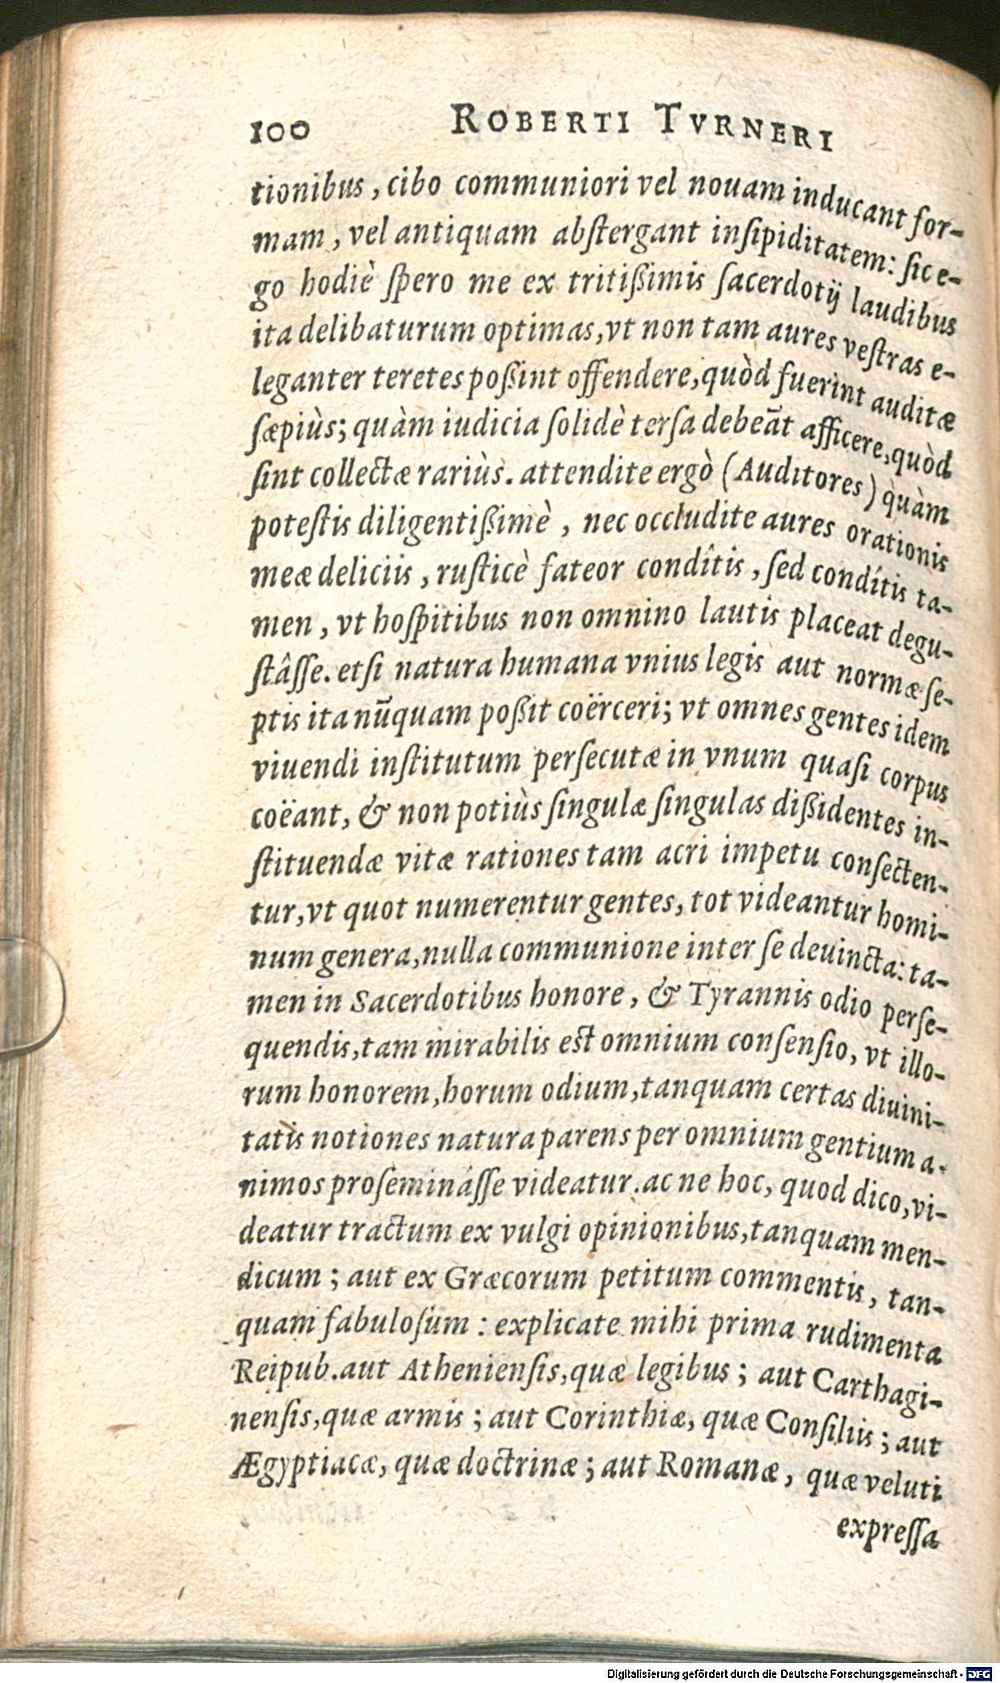 100 ROBERTI TVRNERI
tionibus, cibo communiori vel nouam inducant for-
mam, vel antiquam abstergant insipiditatem: sic e-
go hodiè spero me ex tritißimis sacerdotij laudibus
ita delibaturum optimas, vt non tam aures vestras e-
leganter teretes poßint offendere, quòd fuerint auditæ
sæpiùs; quàm iudicia solidè tersa debeāt afficere, quòd
sint collectæ rariùs. attendite ergò (Auditores) quàm
potestis diligentißimè, nec occludite aures orationis
meæ deliciis, rusticè fateor condîtis, sed condîtis ta-
men, vt hospitibus non omnino lautis placeat degu-
stâsse. etsi natura humana vnius legis aut normæ se-
ptis ita nūquam poßit coërceri; vt omnes gentes idem
viuendi institutum persecutæ in vnum quasi corpus
coëant, & non potiùs singulæ singulas dißidentes in-
stituendæ vitæ rationes tam acri impetu consecten-
tur, vt quot numerentur gentes, tot videantur homi-
num genera, nulla communione inter se deuincta: ta-
men in Sacerdotibus honore, & Tyrannis odio perse-
quendis, tam mirabilis est omnium consensio, vt illo-
rum honorem, horum odium, tanquam certas diuini-
tatis notiones natura parens per omnium gentium a-
nimos proseminásse videatur. ac ne hoc, quod dico, vi-
deatur tractum ex vulgi opinionibus, tanquam men-
dicum; aut ex Græcorum petitum commentis, tan-
quam fabulosum: explicate mihi prima rudimenta
Reipub. aut Atheniensis, quæ legibus; aut Carthagi-
nensis, quæ armis; aut Corinthiæ, quæ Consiliis; aut
Ægyptiacæ, quæ doctrinæ; aut Romanæ, quæ veluti
expressa
Digitalisierung gefördert durch die Deutsche Forschungsgemeinschaft - DFG